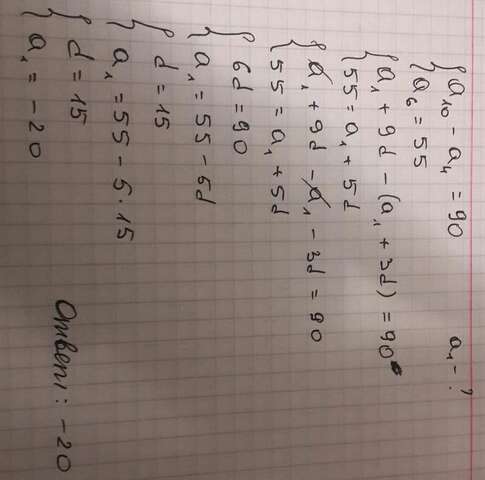 a₁₀ - a₄ = 90 a₁ - ?
a₆ = 55
a₁ + 9d - (a₁ + 3d) = 90
55 = a₁ + 5d
a₁ + 9d - a₁ - 3d = 90
55 = a₁ + 5d
6d = 90
a₁ = 55 - 5d
d = 15
a₁ = 55 - 5 · 15
d = 15
a₁ = -20
Ответ: -20